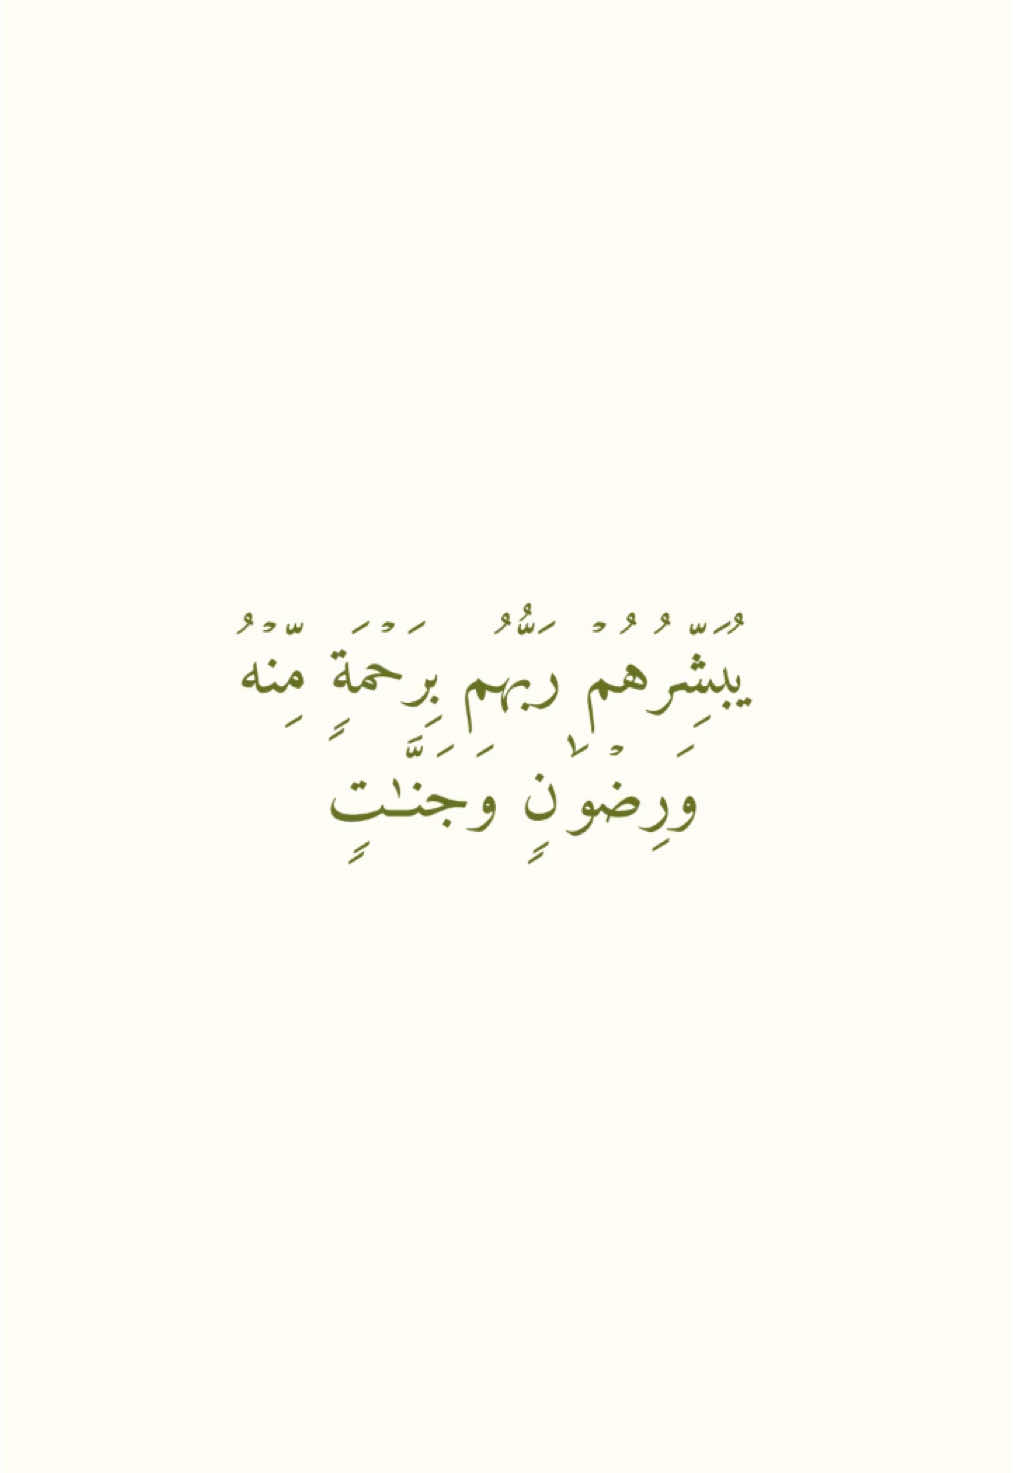 يُبَشِّرُهُمۡ رَبُّهُم بِرَحۡمَةٍ مِّنۡهُ
وَرِضۡوَٰنٍ وَجَنَّـٰتٍ